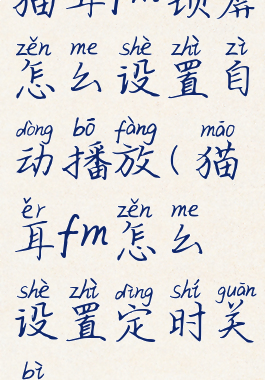 猫耳fm锁屏
zěn me shè zhì zì
怎么设置自
dòng bō fàng māo
动播放(猫
ěr zěn me
耳fm怎么
shè zhì dìng shí guān
设置定时关
bì